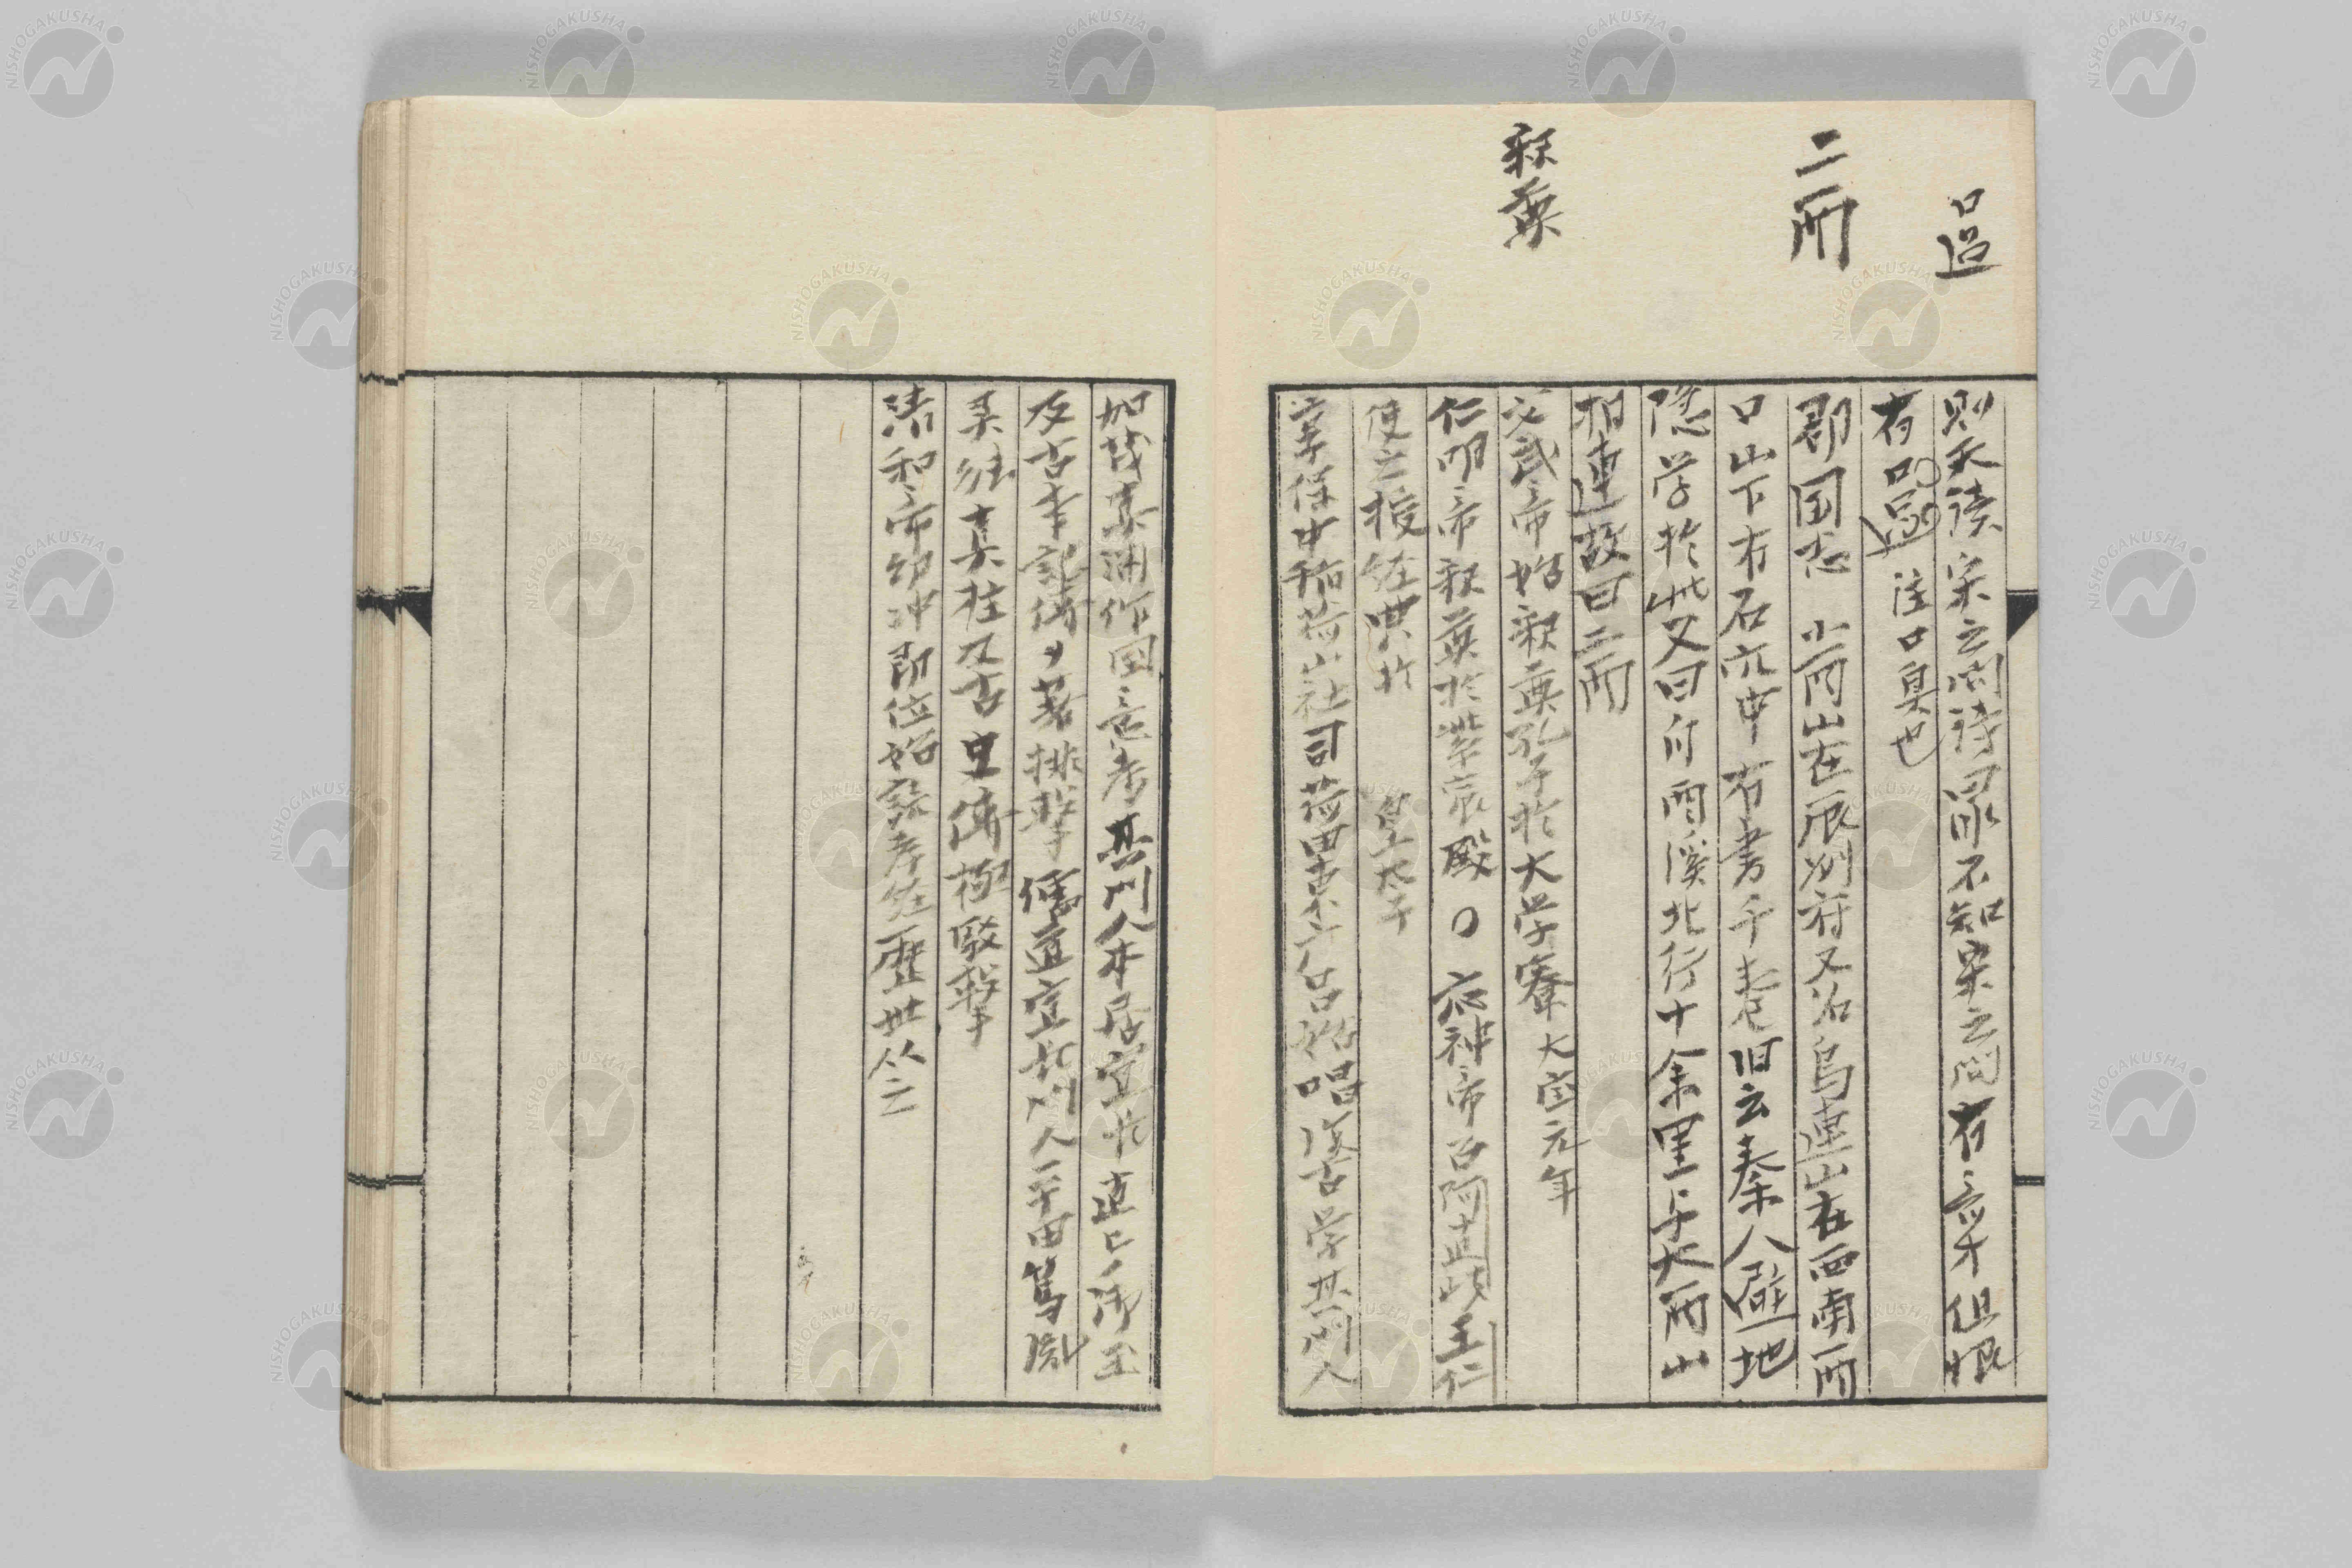 口過
二酉
釈奠
則天読宋之問詩曰不知宋之問有奇才但恨
有口過 注口臭也
郡国志 小酉山在辰州府又名烏速山在西南酉
口山下有石穴中有書千巻旧云秦人避地
隠学於此又曰自酉溪北行十余里与大酉山
相連故曰二酉
文武帝始釈奠孔子於大学寮 大宝元年
仁明帝釈奠於紫宸殿〇応神帝召阿直岐王仁
使之授経典於 皇太子
享保中稲荷山社司荷田東 始唱復古学其門人
加茂真淵作国意考其門人本居宣長 直 玉
及古事記伝 著排撃儒道宣長門人平田篤胤
真柱及古史伝極駁撃
清和帝幼冲即位始読孝経歴世
NISHOGAKUSHA